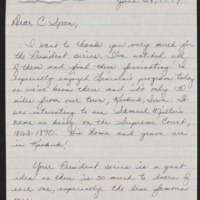 June 28, 1999
Dear C-Span,
I want to thank you very much for
the President series. I've watched all
of them and find them fascinating! I
especially enjoyed Lincoln's program today
as we've been there and its only 130
miles from our town, Keokuk, Iowa. It
was interesting to see Samuel Miller's
name as being on the Supreme Court,
1862-1890. His home and grave are
in Keokuk!
Your President series is a great
idea as there is so much to learn of
each one, especially the less famous